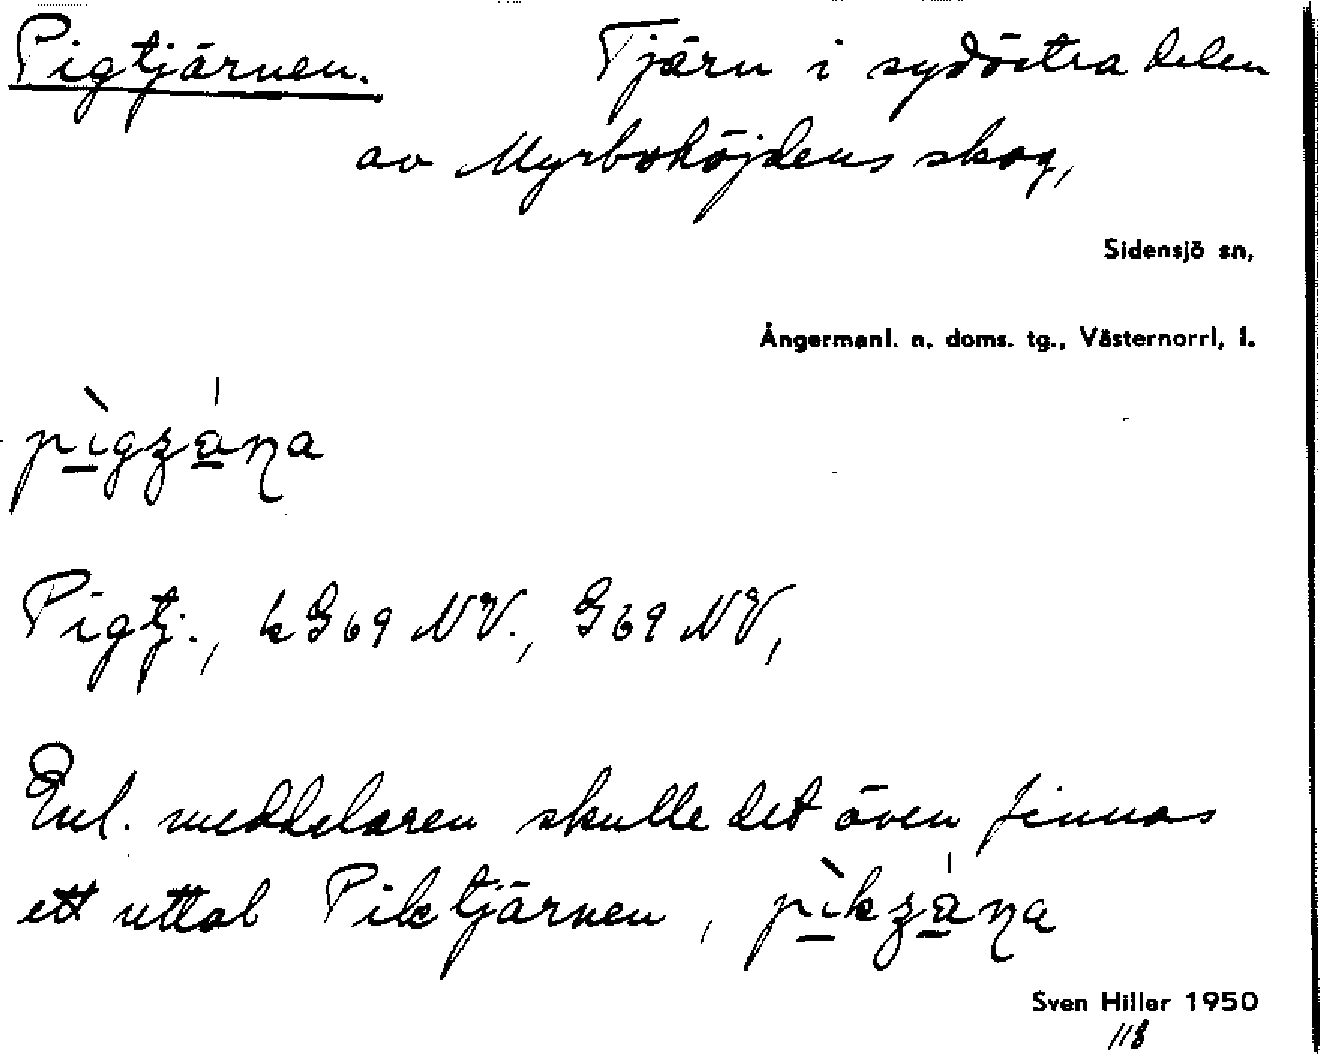 Pigtjärnen. Tjärn i sydöstra delen
av Myrbohöjdens skog,
Sidensjö sn,
Ångermanl. n. doms. tg., Västernorrl. l.
pìgzána
Pigtj., k G69 NV., G69 NV,
Enl. meddelaren skulle det även finnas
ett uttal Piktjärnen, pìkzána
Sven Hillar 1950
118